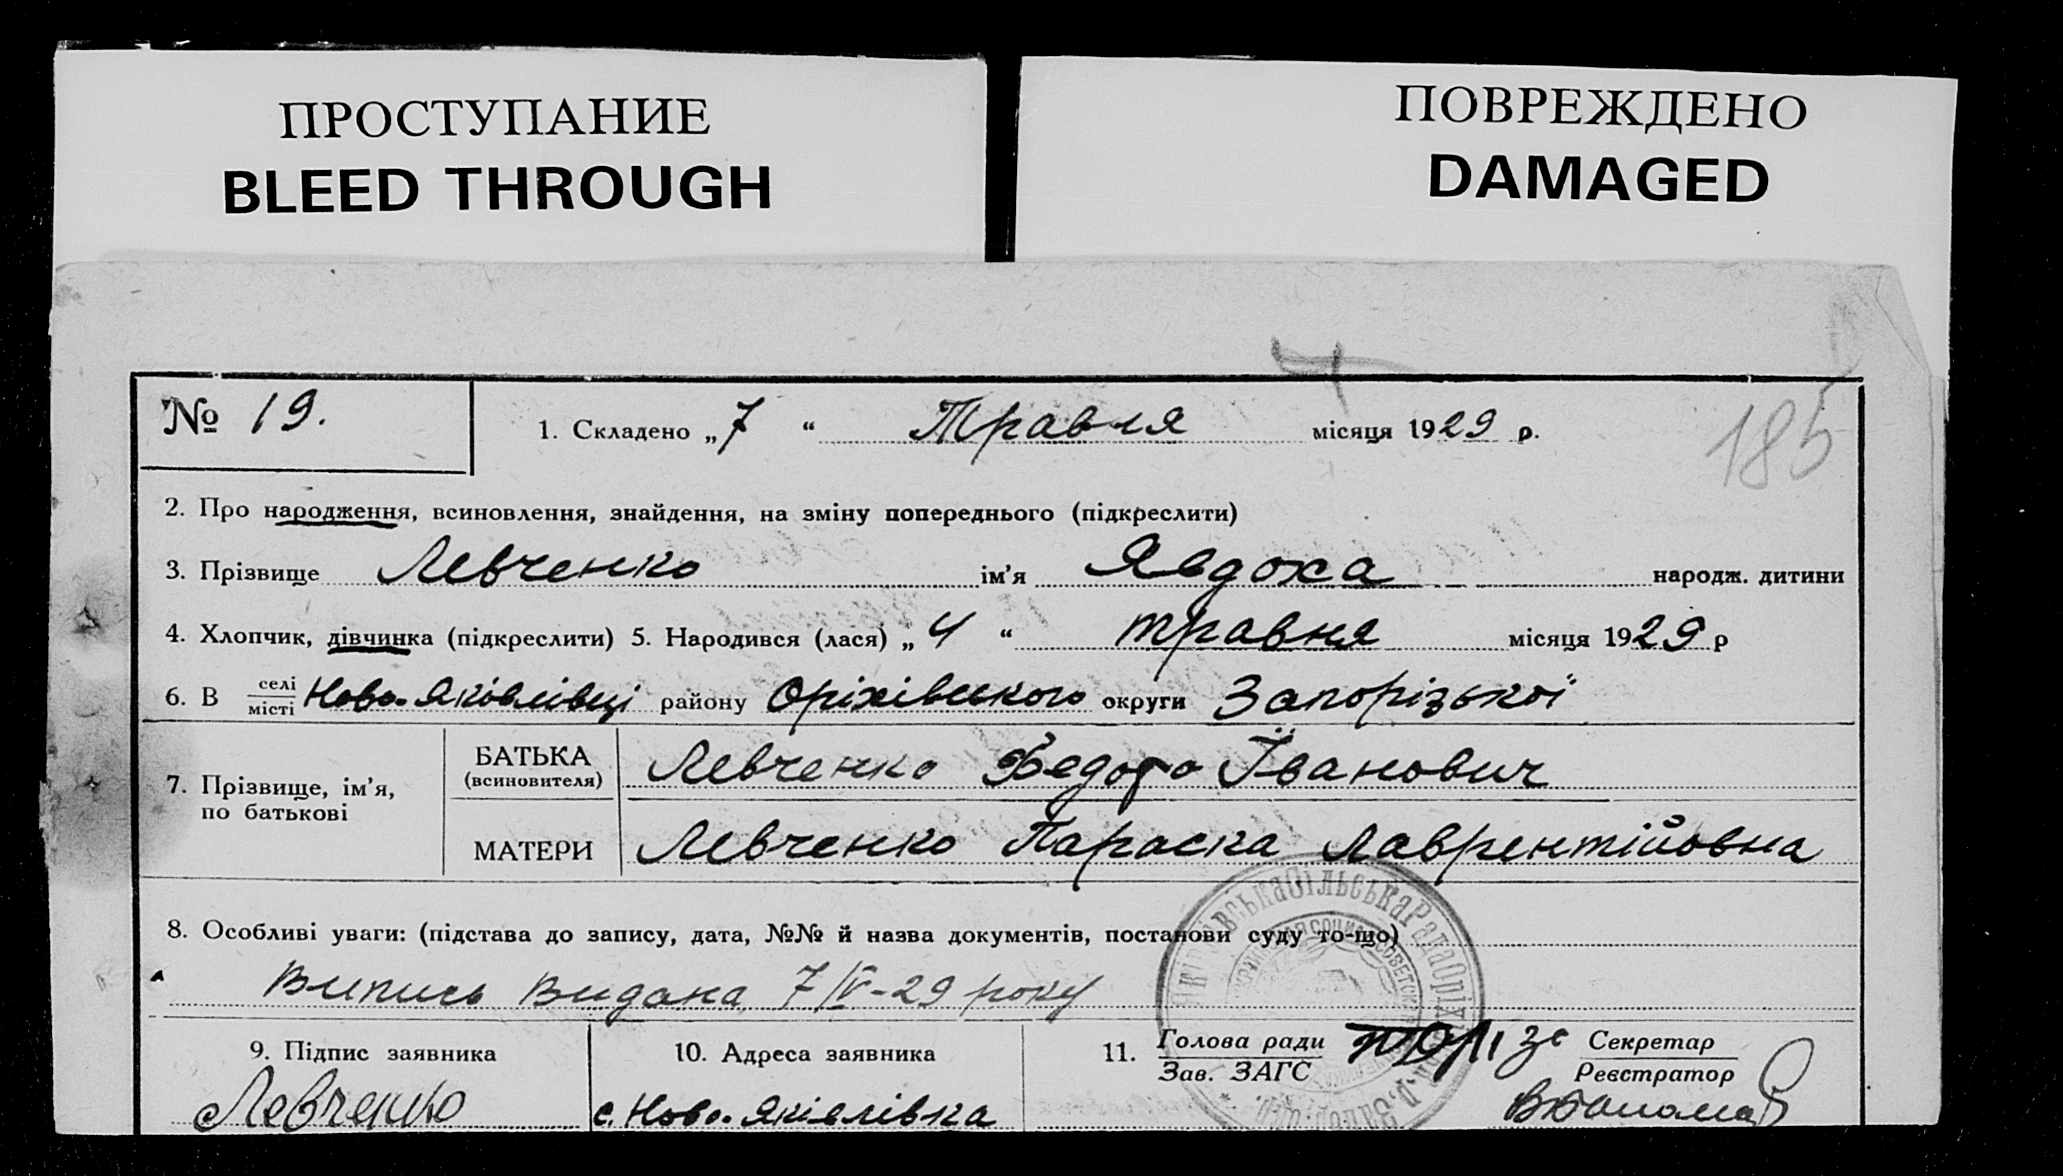 ПРОСТУПАНИЕ
BLEED THROUGH
ПОВРЕЖДЕНО
DAMAGED
185
№ 19.
1. Складено „7“ Травля місяця 1929 р.
2. Про народження, всиновлення, знайдення, на зміну попереднього (підкреслити)
3. Прізвище Левченко ім'я Явдоха народж. дитини
4. Хлопчик, дівчинка (підкреслити) 5. Народився (лася) „4“ травня місяця 1929 р
6. В селі місті Ново-Яковлівці району Оріхівського округи Запорізької
7. Прізвище, ім'я, по батькові
БАТЬКА (всиновителя) Левченко Федор Їванович
МАТЕРИ Левченко Параска Лаврентійовна
8. Особливі уваги: (підстава до запису, дата, №№ й назва документів, постанови суду то-що)
Випись Видана 7/V-29 року
9. Підпис заявника
Левченко
10. Адреса заявника
с. Ново-Яківлівка
11. Голова ради
Зав. ЗАГС
Секретар
Реєстратор